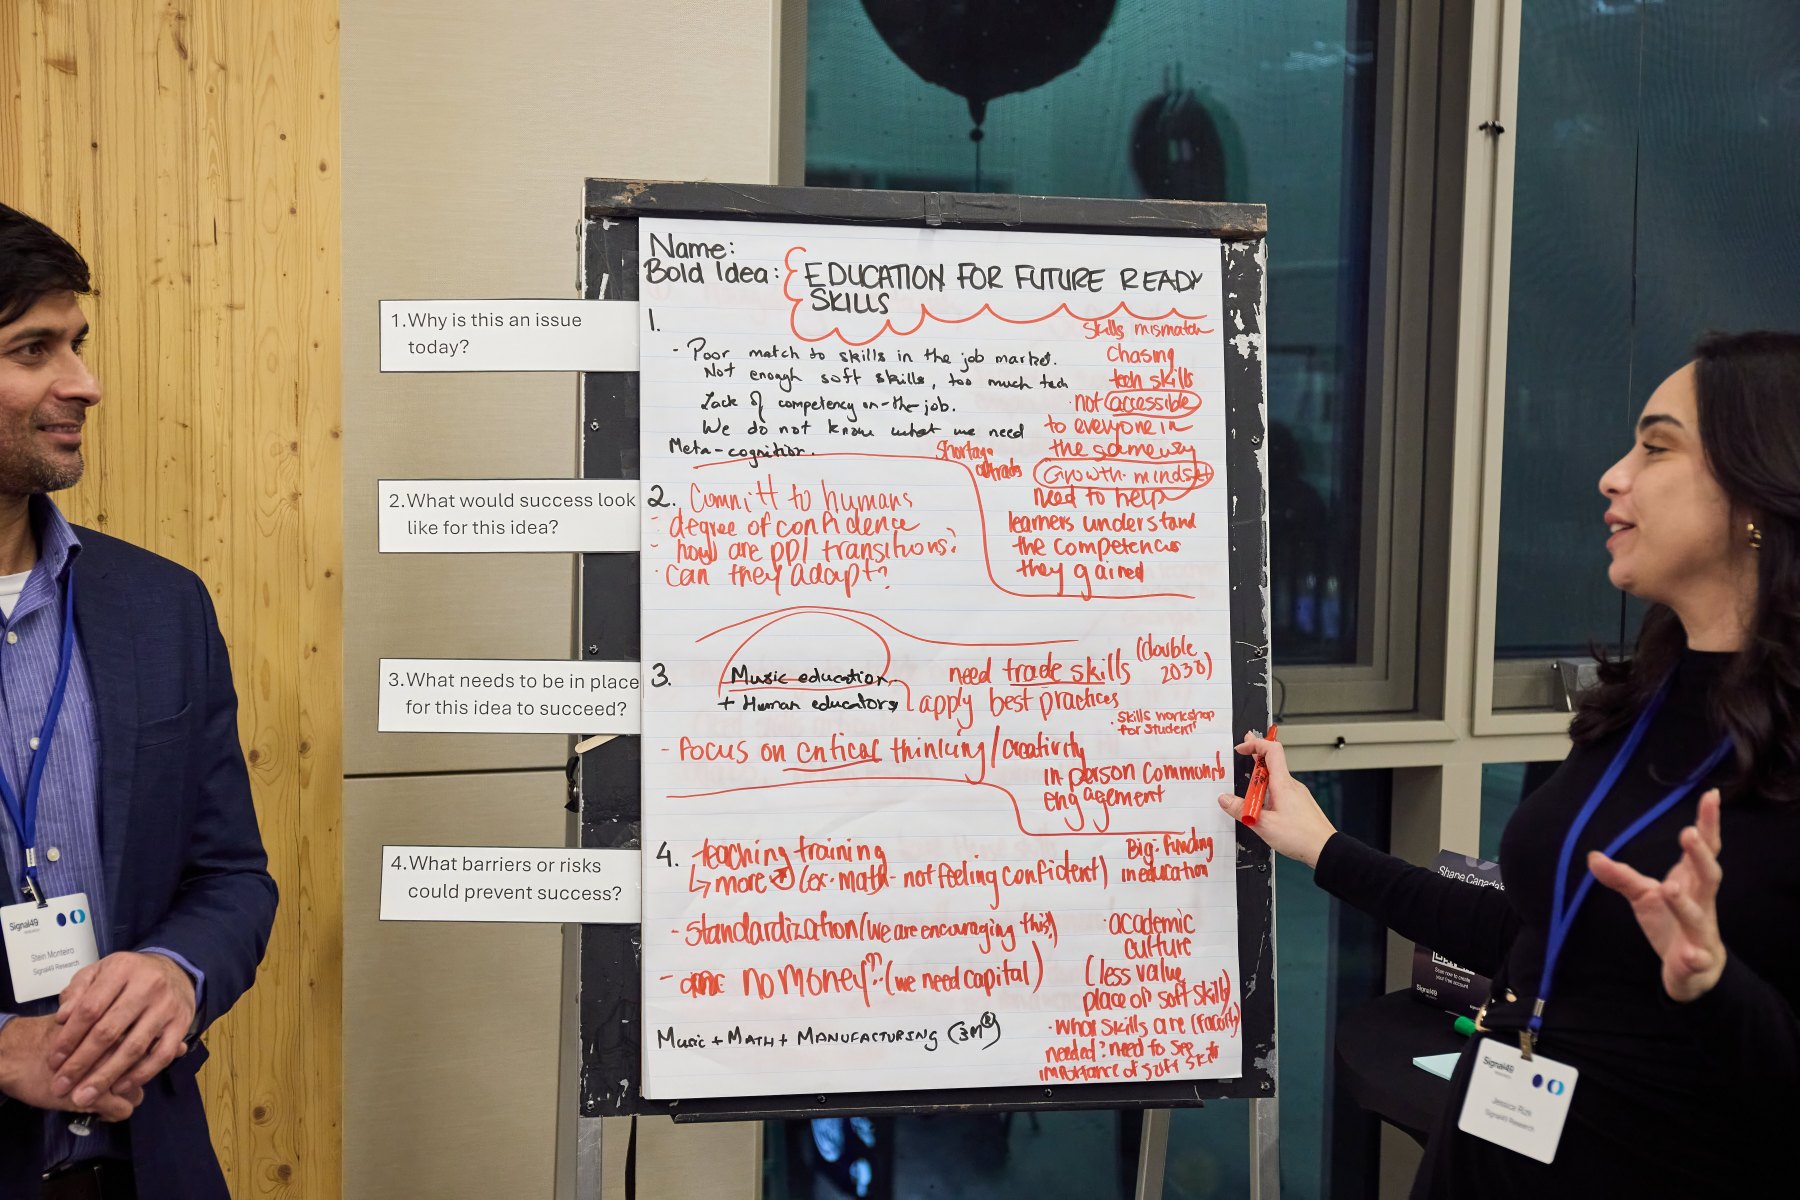 Name:
Bold Idea: EDUCATION FOR FUTURE READY
SKILLS
1.Why is this an issue
today?
1.
- Poor match to skills in the job market.
Not enough soft skills, too much tech
Lack of competency on-the-job.
We do not know what we need
Meta-cognition.
Skills mismatch
Chasing
tech skills
·not accessible
to everyone in
the same way
Growth mindset
need to help
learners understand
the competencies
they gained
Shortage
of trades
2.What would success look
like for this idea?
2. Committ to humans
- degree of confidence
- how are ppl transitions?
· can they adapt?
3.What needs to be in place
for this idea to succeed?
3.
Music education
+ Human educators
need trade skills
(double
2030)
apply best practices
· skills workshop
for student
- Focus on critical thinking/creativity
in person community
engagement
4.What barriers or risks
could prevent success?
4. teaching training
↳ more (ex. math - not feeling confident)
Big: Funding
in education
- standardization (we are encouraging this!)
- no money (we need capital)
· academic
culture
(less value
place on soft skills)
· what skills are (faculty)
needed? need to see
importance of soft skills
MUSIC + MATH + MANUFACTURING (3M®)
Signal49
Stein Monteiro
Signal49 Research
Shape Canada's
Scan now to create
your free account
Signal49
Signal49
Jessica Rizk
Signal49 Research